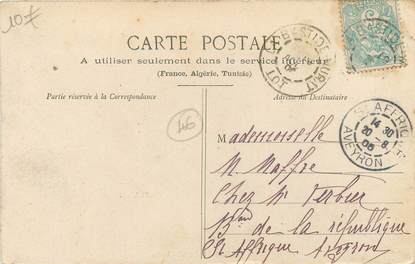 10f
CARTE POSTALE
A utiliser seulement dans le service intérieur
(France, Algérie, Tunisie)
Partie réservée à la Correspondance
Adresse du Destinataire
46
ST AFFRIQUE
14 30
20 - 8
06
AVEYRON
Mademoiselle
M. Maffre
Chez Mr Verbier
Bard de la république
St Affrique Aveyron